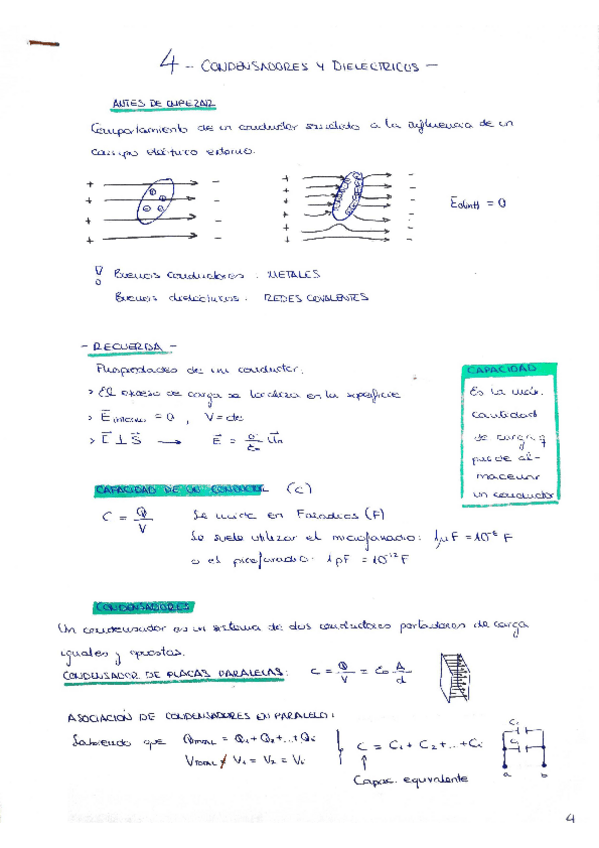 4 - CONDENSADORES Y DIELECTRICOS -
ANTES DE EMPEZAR
Comportamiento de un conductor sometido a la influencia de un
campo eléctrico externo.
+ - + -
+ - + -
+ - + -
+ - + -
E(dint) = 0
Buenos conductores: METALES
Buenos dieléctricos: REDES COVALENTES
- RECUERDA -
Propiedades de un conductor:
> El exceso de carga se localiza en la superficie
> E interno = 0 , V = cte
> E ⊥ S → E = σ/ε₀ Un
CAPACIDAD
Es la máx.
cantidad
de carga q
puede al-
macenar
un conductor
CAPACIDAD DE UN CONDUCTOR (C)
C = Q/V Se mide en Faradios (F)
Se suele utilizar el microfaradio: 1μF = 10⁻⁶ F
o el picofaradio: 1pF = 10⁻¹² F
CONDENSADORES
Un condensador es un sistema de dos conductores portadores de carga
iguales y opuestas.
CONDENSADOR DE PLACAS PARALELAS: C = Q/V = ε₀ A/d
ASOCIACIÓN DE CONDENSADORES EN PARALELO:
Sabiendo que QTOTAL = Q₁ + Q₂ + ... + Qi
VTOTAL = V₁ = V₂ = Vi
C = C₁ + C₂ + ... + Ci
Capac. equivalente
a b
4